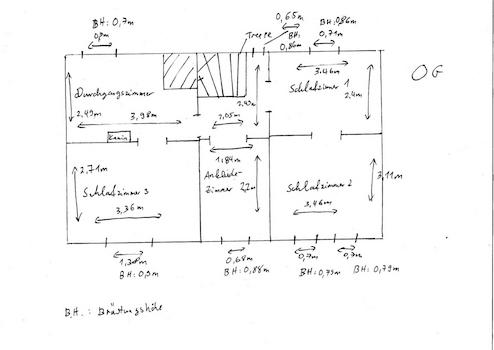 BH: 0,7m
0,9m
0,65m
BH: 0,86m
Treppe
BH: 0,86m
0,71m
OG
3,46m
Durchgangszimmer
Schlafzimmer 1
2,49m
3,98m
2,49m
2,4m
2,05m
Kamin
1,84m
2,71m
Ankleide-
zimmer 2,7m
3,11m
Schlafzimmer 3
Schlafzimmer 2
3,36m
3,46m
0,68m
0,7m
0,7m
BH: 0,88m
BH: 0,79m
BH: 0,79m
B.H. : Brüstungshöhe